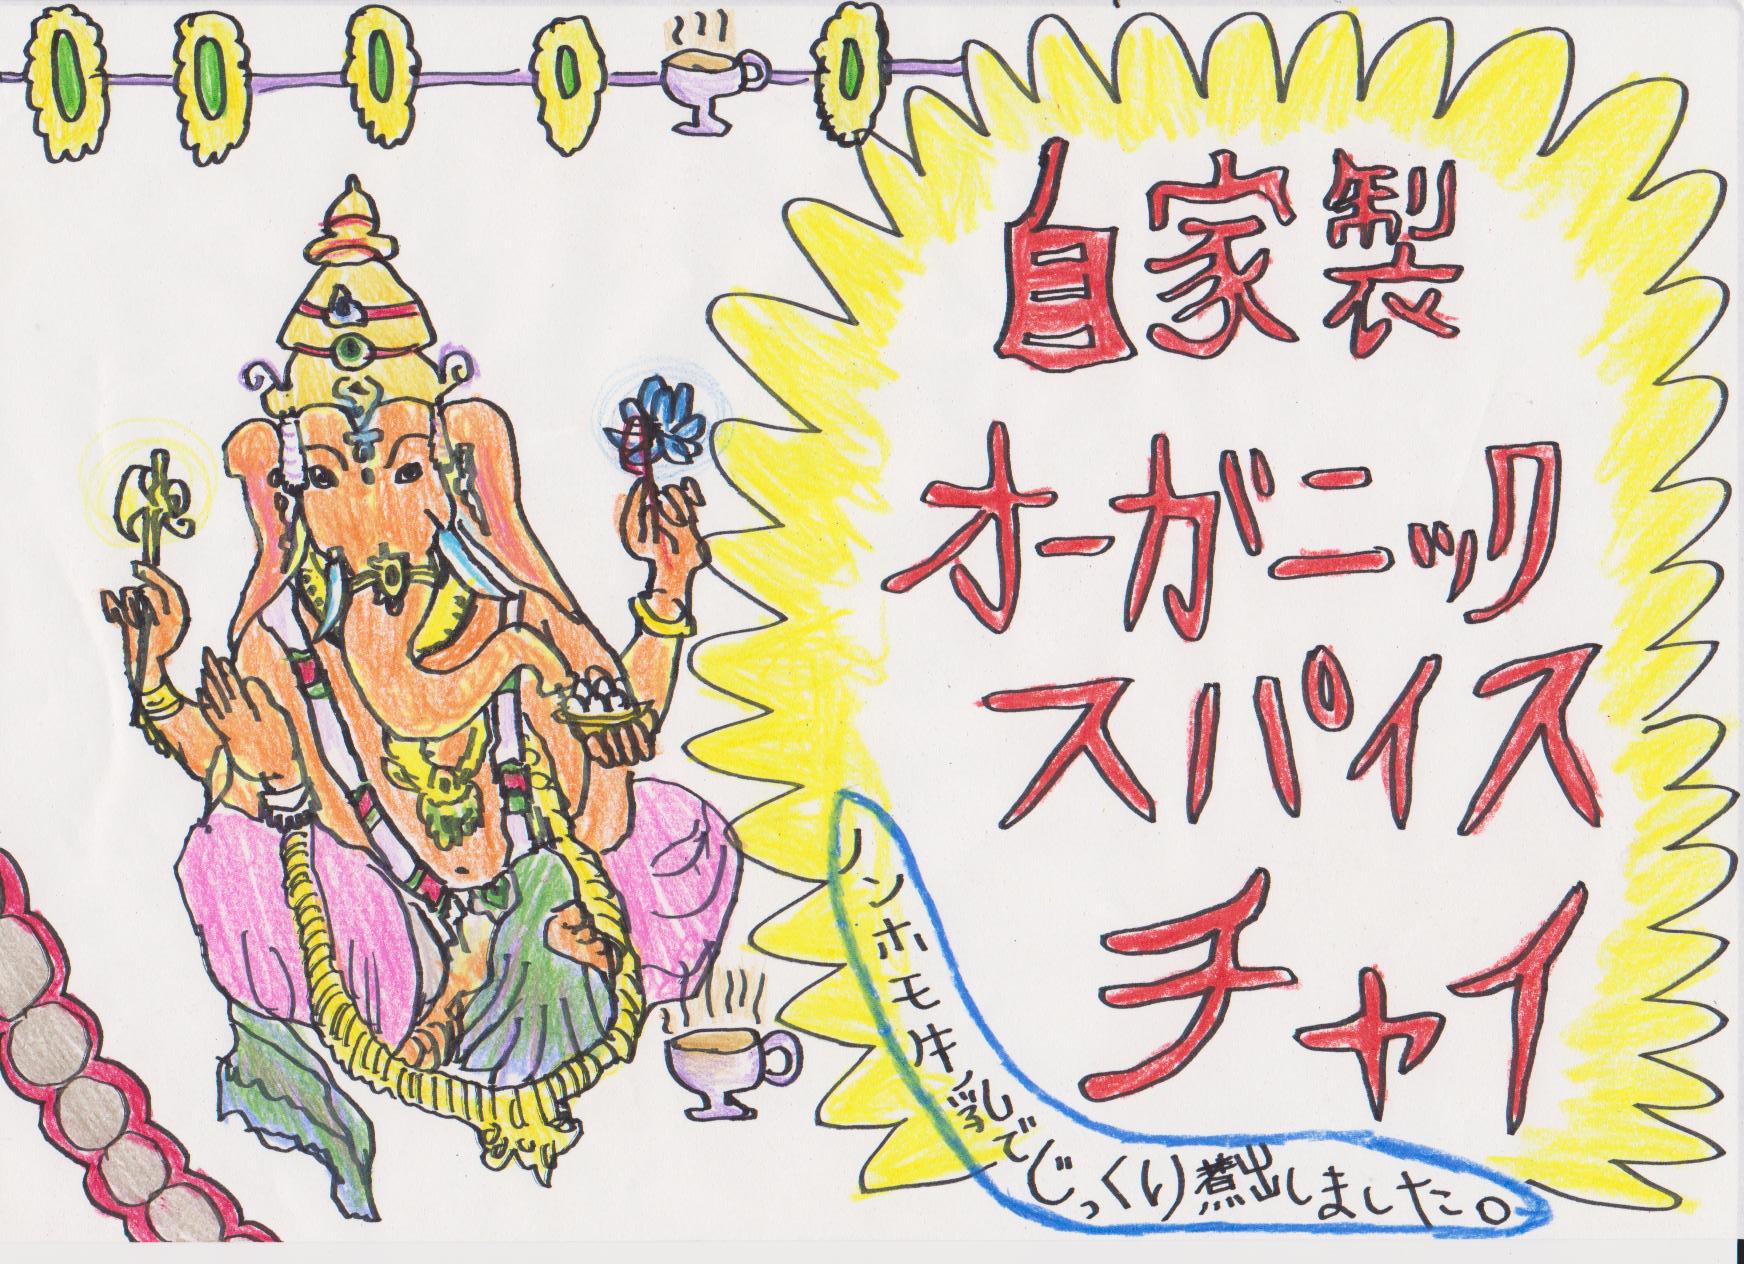 自家製
オーガニック
スパイス
チャイ
ノンホモ牛乳でじっくり煮出しました。